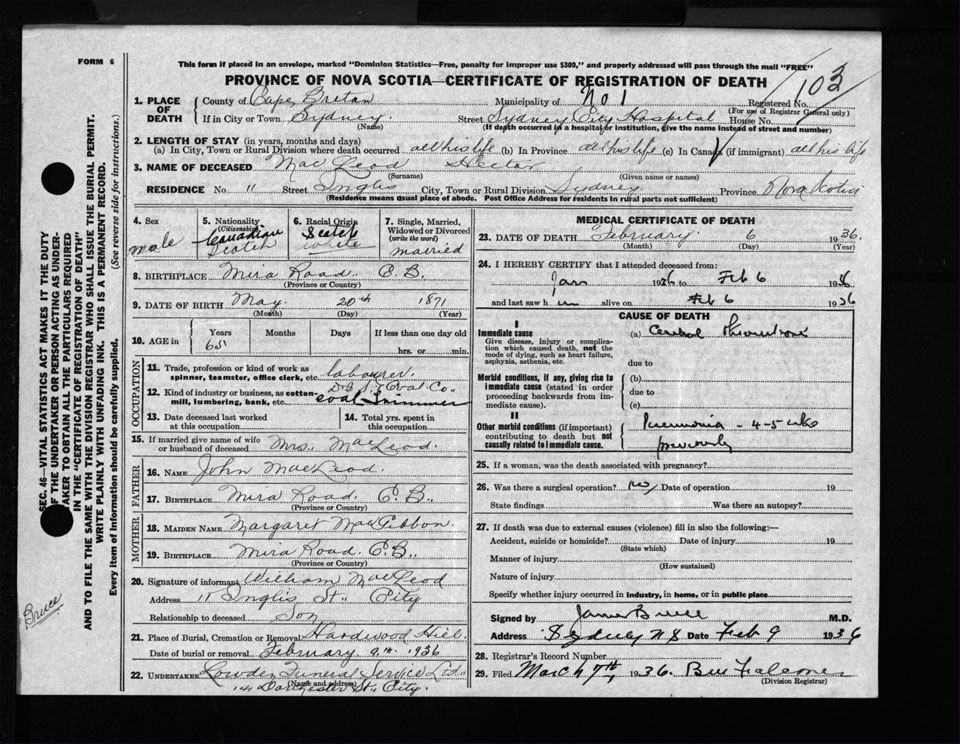 FORM 6
This form if placed in an envelope, marked "Dominion Statistics—Free, penalty for improper use $300," and properly addressed will pass through the mail "FREE"
PROVINCE OF NOVA SCOTIA—CERTIFICATE OF REGISTRATION OF DEATH
103
1. PLACE OF DEATH
County of Cape Breton Municipality of No 1 Registered No.
(For use of Registrar General only)
If in City or Town Sydney Street Sydney City Hospital House No.
(Name) (If death occurred in a hospital or institution, give the name instead of street and number)
2. LENGTH OF STAY (in years, months and days)
(a) In City, Town or Rural Division where death occurred all his life (b) In Province all his life (c) In Canada (if immigrant) all his life
3. NAME OF DECEASED MacLeod Hector
(Surname) (Given name or names)
RESIDENCE No. 11 Street Inglis City, Town or Rural Division Sydney Province Nova Scotia
(Residence means usual place of abode. Post Office Address for residents in rural parts not sufficient)
4. Sex male
5. Nationality (Citizenship) Canadian Scotch
6. Racial Origin Scotch white
7. Single, Married, Widowed or Divorced (write the word) married
8. BIRTHPLACE Mira Road C.B.
(Province or Country)
9. DATE OF BIRTH May 20th 1871
(Month) (Day) (Year)
10. AGE in
Years Months Days If less than one day old
65 hrs. or min.
OCCUPATION
11. Trade, profession or kind of work as spinner, teamster, office clerk, etc. labourer
12. Kind of industry or business, as cotton mill, lumbering, bank, etc. Coal Co. coal trimmer
13. Date deceased last worked at this occupation
14. Total yrs. spent in this occupation
15. If married give name of wife or husband of deceased Mrs. MacLeod
FATHER
16. NAME John MacLeod
17. BIRTHPLACE Mira Road C.B.
(Province or Country)
MOTHER
18. MAIDEN NAME Margaret MacGibbon
19. BIRTHPLACE Mira Road C.B.
(Province or Country)
20. Signature of informant William MacLeod
Address 11 Inglis St., City
Relationship to deceased Son
21. Place of Burial, Cremation or Removal Hardwood Hill
Date of burial or removal February 9th 1936
22. UNDERTAKER Lowden Funeral Service Ltd.
(Name and address)
Dorchester St., City.
MEDICAL CERTIFICATE OF DEATH
23. DATE OF DEATH February 6 1936.
(Month) (Day) (Year)
24. I HEREBY CERTIFY that I attended deceased from:
Jan 1936 to Feb 6 1936
and last saw him alive on Feb 6 1936
CAUSE OF DEATH
I
Immediate cause
Give disease, injury or complication which caused death, not the mode of dying, such as heart failure, asphyxia, asthenia, etc.
(a) Cerebral Thrombosis
due to
Morbid conditions, if any, giving rise to immediate cause (stated in order proceeding backwards from immediate cause).
(b)
due to
(c)
II
Other morbid conditions (if important) contributing to death but not causally related to immediate cause.
Pneumonia - 4-5 wks
previously
25. If a woman, was the death associated with pregnancy?
26. Was there a surgical operation? no Date of operation 19
State findings Was there an autopsy?
27. If death was due to external causes (violence) fill in also the following:—
Accident, suicide or homicide? Date of injury 19
(State which)
Manner of injury
(How sustained)
Nature of injury
Specify whether injury occurred in industry, in home, or in public place
Signed by James Bruce M.D.
Address Sydney N S Date Feb 9 1936
28. Registrar's Record Number
29. Filed March 7th, 1936.
(Division Registrar)
SEC. 46—VITAL STATISTICS ACT MAKES IT THE DUTY
OF THE UNDERTAKER OR PERSON ACTING AS UNDERTAKER
TO OBTAIN ALL THE PARTICULARS REQUIRED
IN THE "CERTIFICATE OF REGISTRATION OF DEATH"
AND TO FILE THE SAME WITH THE DIVISION REGISTRAR WHO SHALL ISSUE THE BURIAL PERMIT.
WRITE PLAINLY WITH UNFADING INK. THIS IS A PERMANENT RECORD.
Every item of Information should be carefully supplied. (See reverse side for instructions.)
Bruce